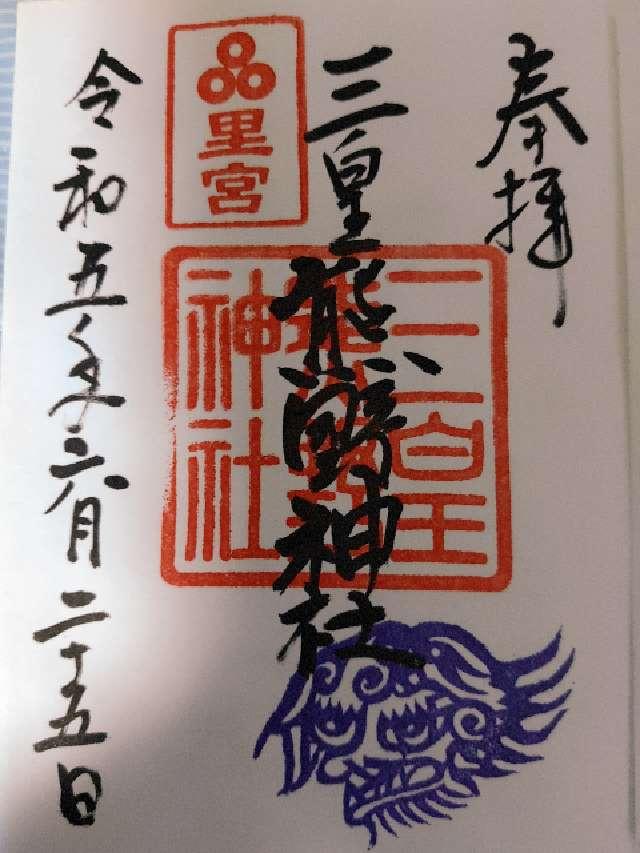 奉拝
三皇熊野神社
三皇熊野神社
里宮
令和五年六月二十五日